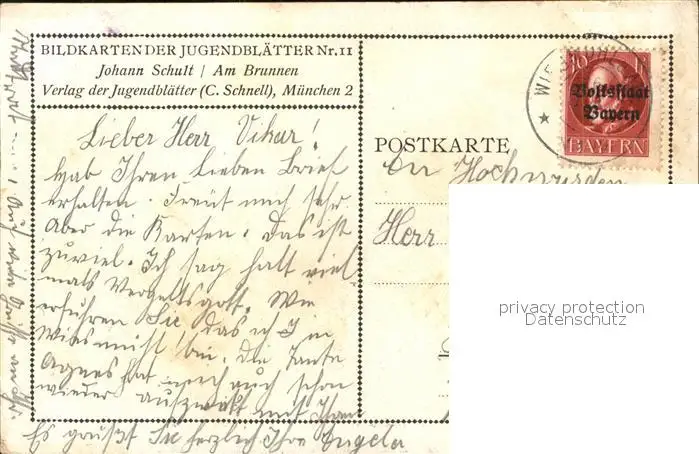 BILDKARTEN DER JUGENDBLÄTTER Nr. 11
Johann Schult | Am Brunnen
Verlag der Jugendblätter (C. Schnell), München 2
Lieber Herr Vikar!
Hab Ihren Lieben Brief
erhalten. Freut mich sehr
Aber die Karten. Das ist
zuviel. Ich sag halt viel
mals Vergeltsgott. Wie
erfuhren Sie, das ich I in
bin. Die Tante
Agnes hat mich auch schon
wieder
Es grüßt Sie herzlich Ihre Engela
POSTKARTE
An Hochwürden
Herr
WIE
10
Volksstaat
Bayern
BAYERN
privacy protection
Datenschutz